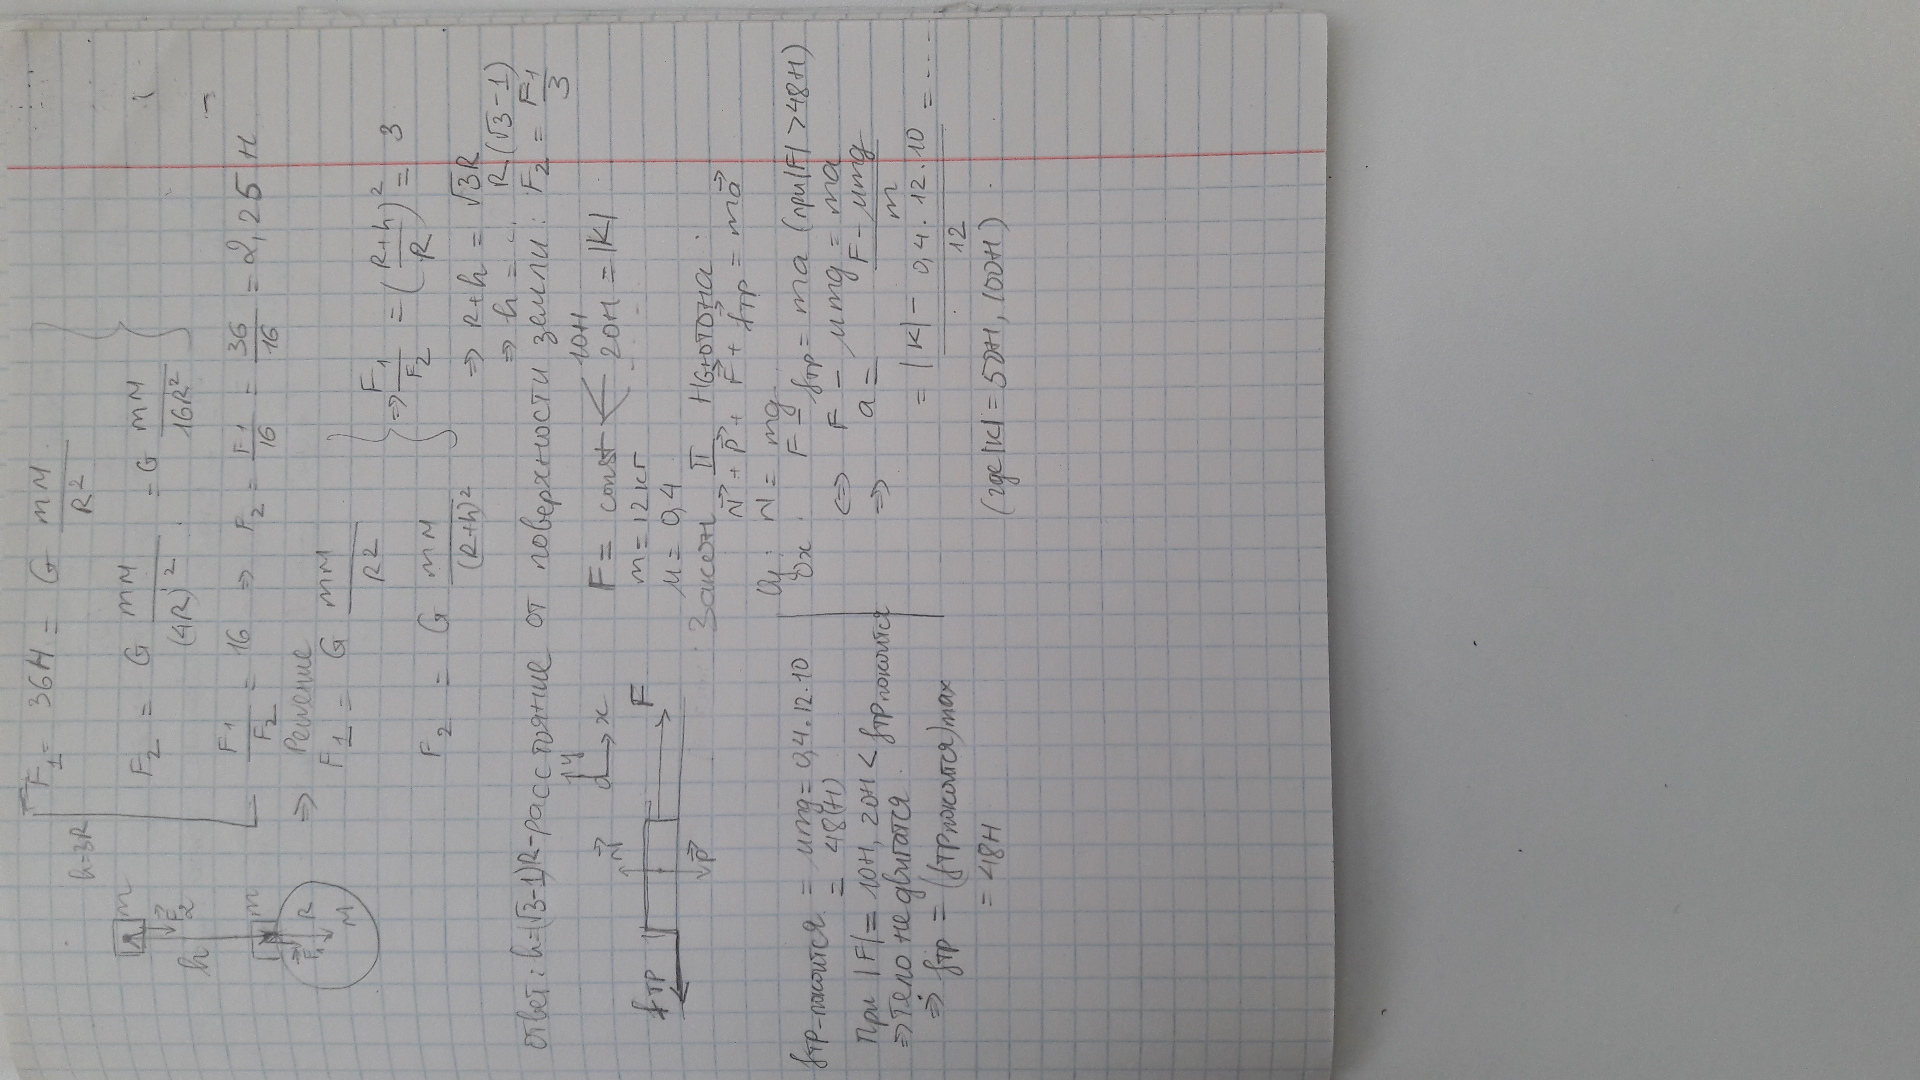 h=3R
F₁ = 36H = G mM/R²
F₂ = G mM/(4R)² = G mM/16R²
F₁/F₂ = 16 ⇒ F₂ = F₁/16 = 36/16 = 2,25 H
m
F₂
h
m
F₁ R
M
⇒ Решение
F₁ = G mM/R²
F₂ = G mM/(R+h)²
⇒ F₁/F₂ = ((R+h)/R)² = 3
⇒ R+h = √3R
⇒ h = R(√3-1)
Ответ: h=(√3-1)R-расстояние от поверхности земли: F₂ = F₁/3
y
x
N
F
fтр
P
F = const
10H
20H = |K|
m = 12 кг
μ = 0,4
Закон II Ньютона:
N + P + F + fтр = ma
Oy: N = mg
Ox: F - fтр = ma (при |F| > 48H)
⇔ F - μmg = ma
⇒ a = (F - μmg)/m
= (|K| - 0,4.12.10)/12 = ....
(где |K| = 50H, 100H)
fтр-покоится = μmg = 0,4.12.10
= 48(H)
При |F| = 10H, 20H < fтр покоится
⇒ Тело не двигатся
⇒ fтр = (fтр покоится)max
= 48H